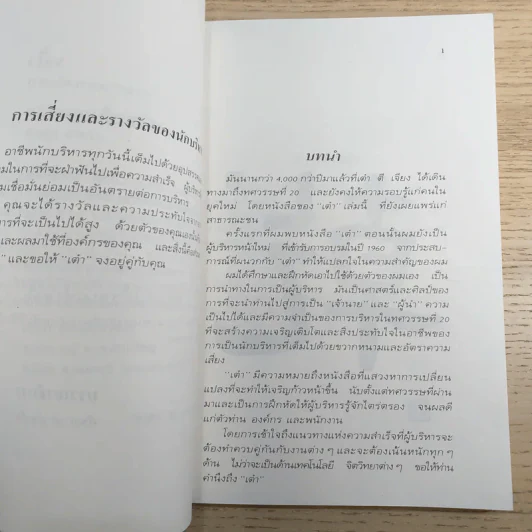 การเสี่ยงและรางวัลของนัก
อาชีพนักบริหารทุกวันนี้เต็มไปด้วย
ในการที่จะฝ่าฟันไปเพื่อความสำเร็จ
เชื่อมั่นย่อมเป็นอันตรายต่อการบริหาร
คุณจะได้รางวัลและความประทับใจ
การที่จะเป็นไปได้สูง ด้วยตัวของคุณ
และผลมาใช้ที่องค์กรของคุณ และสิ่งนี้
" และขอให้ "เต๋า" จงอยู่คู่กับคุณ
1
บทนำ
มันนานกว่า 4,000 กว่าปีมาแล้วที่เต๋า ตี เจียง ได้เดิน
ทางมาถึงทศวรรษที่ 20 และยังคงให้ความรอบรู้แก่คนใน
ยุคใหม่ โดยหนังสือของ "เต๋า" เล่มนี้ ที่ยังเผยแพร่แก่
สาธารณะชน
ครั้งแรกที่ผมพบหนังสือ "เต๋า" ตอนนั้นผมยังเป็น
ผู้บริหารหน้าใหม่ ที่เข้ารับการอบรมในปี 1960 จากประสบ-
การณ์ที่ผนวกกับ "เต๋า" ทำให้แปลกใจในความสำคัญของผม
ผมได้ศึกษาและฝึกหัดเอาไปใช้ด้วยตัวของผมเอง เป็น
การนำทางในการเป็นผู้บริหาร มันเป็นศาสตร์และศิลป์ของ
การที่จะนำท่านไปสู่การเป็น "เจ้านาย" และ "ผู้นำ" ความ
เป็นไปได้และมีความจำเป็นของการบริหารในทศวรรษที่ 20
ที่จะสร้างความเจริญเติบโตและสิ่งประทับใจในอาชีพของ
การเป็นนักบริหารที่เต็มไปด้วยขวากหนามและอัตราความ
เสี่ยง
"เต๋า" มีความหมายถึงหนังสือที่แสวงหาการเปลี่ยน
แปลงที่จะทำให้เจริญก้าวหน้าขึ้น นับตั้งแต่ทศวรรษที่ผ่าน
มาและเป็นการฝึกหัดให้ผู้บริหารรู้จักไตร่ตรอง จนผลดี
แก่ตัวท่าน องค์กร และพนักงาน
โดยการเข้าใจถึงแนวทางแห่งความสำเร็จที่ผู้บริหารจะ
ต้องทำควบคู่กันกับงานต่าง ๆ และจะต้องเน้นหนักทุก ๆ
ด้าน ไม่ว่าจะเป็นด้านเทคโนโลยี จิตวิทยาต่าง ๆ ขอให้ท่าน
คำนึงถึง "เต๋า"